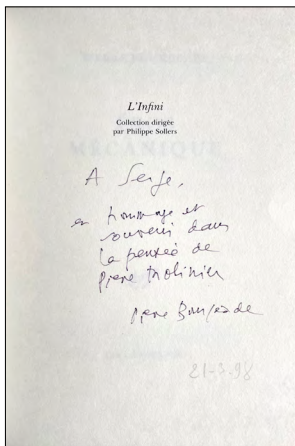 L'Infini
Collection dirigée
par Philippe Sollers
MÉCANIQUE
A Serge,
en hommage et
souvenir dans
la pensée de
Pierre Molinier
Pierre Bourgeade
21-3-98